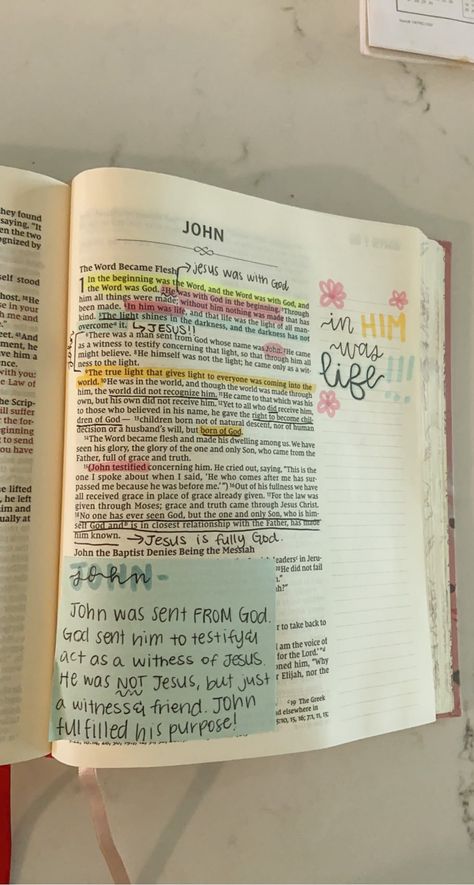 hey found
saying, "It
en the two
ognized by
self stood
host. 38He
h me and
have me in a
with you:
e Law of
the Scrip-
ill suffer
the for-
ginning
to send
ou have
e lifted
, he left
im and
ually at
JOHN
The Word Became Flesh → Jesus was with God
1 In the beginning was the Word, and the Word was with God, and
the Word was God. 2He was with God in the beginning. 3Through
him all things were made; without him nothing was made that has
been made. 4In him was life, and that life was the light of all man-
kind. 5The light shines in the darkness, and the darkness has not
overcome it. ↳ JESUS!!
6There was a man sent from God whose name was John. 7He came
as a witness to testify concerning that light, so that through him all
might believe. 8He himself was not the light; he came only as a wit-
ness to the light.
9The true light that gives light to everyone was coming into the
world. 10He was in the world, and though the world was made through
him, the world did not recognize him. 11He came to that which was his
own, but his own did not receive him. 12Yet to all who did receive him,
to those who believed in his name, he gave the right to become chil-
dren of God— 13children born not of natural descent, nor of human
decision or a husband's will, but born of God.
14The Word became flesh and made his dwelling among us. We have
seen his glory, the glory of the one and only Son, who came from the
Father, full of grace and truth.
15(John testified concerning him. He cried out, saying, "This is the
one I spoke about when I said, 'He who comes after me has sur-
passed me because he was before me.'") 16Out of his fullness we have
all received grace in place of grace already given. 17For the law was
given through Moses; grace and truth came through Jesus Christ.
18No one has ever seen God, but the one and only Son, who is him-
self God and is in closest relationship with the Father, has made
him known. → Jesus is fully God.
John the Baptist Denies Being the Messiah
leaders in Jeru-
He did not fail
r to take back to
I am the voice of
for the Lord.'"
oned him, "Why
r Elijah, nor the
c19 The Greek
d elsewhere in
5:10, 15, 16; 7:1, 11, 13;
in HIM
was
life!!!
JOHN-
john
John was sent FROM God.
God sent him to testify &
act as a witness of Jesus.
He was NOT Jesus, but just
a witness & friend. John
fulfilled his purpose!